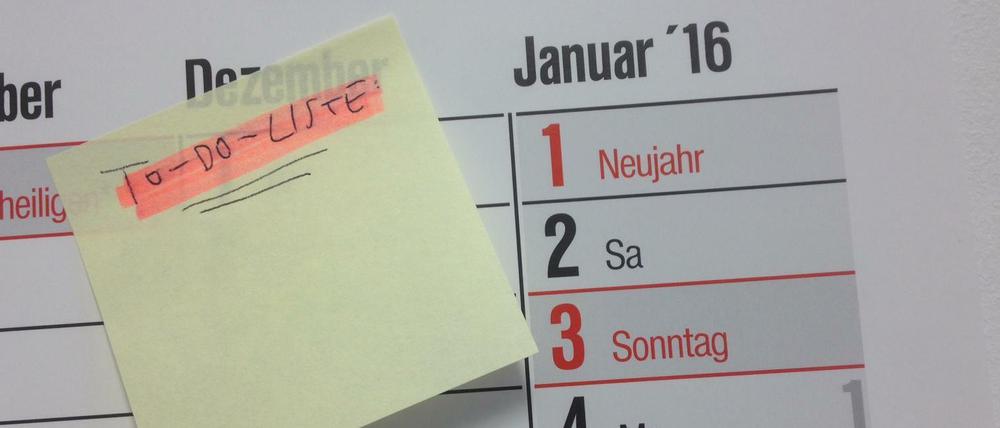 ber
Dezember
Januar ´16
TO-DO-LISTE:
heiligen
1 Neujahr
2 Sa
3 Sonntag
4
1